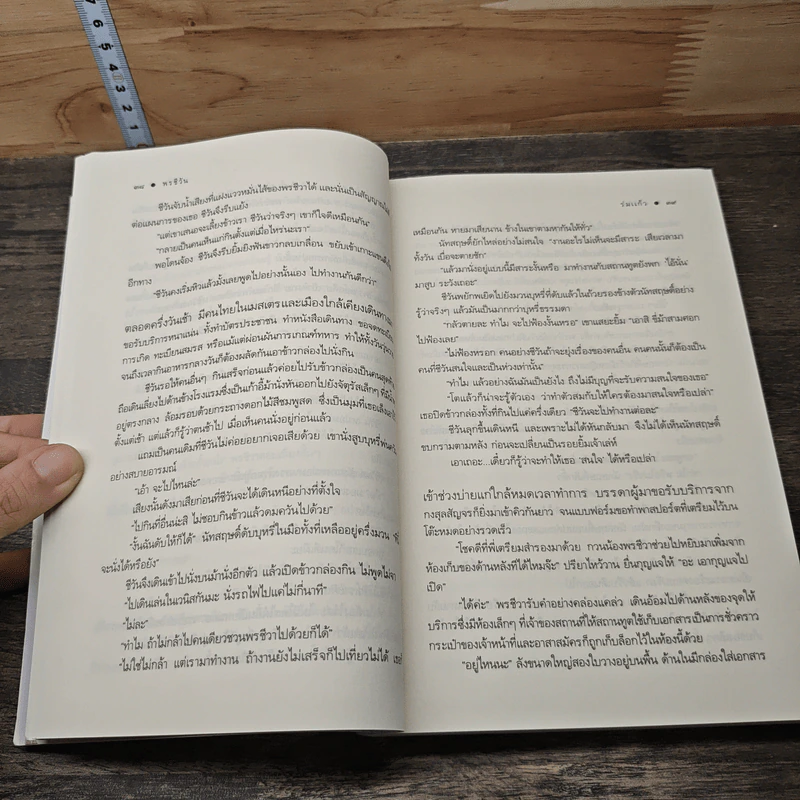 7 6 5 4 3 2 1
๓๘ ● พรชีวัน
ชีวันจับน้ำเสียงที่แฝงแววหมั่นไส้ของพรชีวาได้ และนั่นเป็นสัญญาณ
ต่อแผนการของเธอ ชีวันจึงรีบแย้ง
"แต่เขาเสนอจะเลี้ยงข้าวเรา ชีวันว่าจริงๆ เขาก็ใจดีเหมือนกัน"
"กลายเป็นคนเห็นแก่กินตั้งแต่เมื่อไหร่น่ะเรา"
พอโดนจ้อง ชีวันจึงรีบยิ้มยิงฟันขาวกลบเกลื่อน ขยับเข้าเกาะแขน
อีกทาง
"ชีวันคงเริ่มหิวแล้วมั้งเลยพูดไปอย่างนั้นเอง ไปทำงานกันดีกว่า"
ตลอดครึ่งวันเช้า มีคนไทยในเมสเตรและเมืองใกล้เคียงเดินทาง
ขอรับบริการหนาแน่น ทั้งทำบัตรประชาชน ทำหนังสือเดินทาง ขอจดทะเบียน
การเกิด ทะเบียนสมรส หรือแม้แต่ผ่อนผันการเกณฑ์ทหาร ทำให้ทั้งวัน
จนถึงเวลากินอาหารกลางวันก็ต้องผลัดกันเอาข้าวกล่องไปนั่งกิน
ชีวันรอให้คนอื่นๆ กินเสร็จก่อนแล้วค่อยไปรับข้าวกล่องเป็นคน
ถือเดินเลี่ยงไปด้านข้างโรงแรมซึ่งเป็นเก้าอี้ม้านั่งหันออกไปยังจัตุรัสเล็กๆ ที่มี
อยู่ตรงกลาง ล้อมรอบด้วยกระถางดอกไม้สีชมพูสด ซึ่งเป็นมุมที่เธอเล็ง
ตั้งแต่เช้า แต่แล้วก็รู้ว่าตนช้าไป เมื่อเห็นคนนั่งอยู่ก่อนแล้ว
แถมเป็นคนเดิมที่ชีวันไม่ค่อยอยากเจอเสียด้วย เขานั่งสูบบุหรี่พ่น
อย่างสบายอารมณ์
"เอ้า จะไปไหนล่ะ"
เสียงนั้นดังมาเสียก่อนที่ชีวันจะได้เดินหนีอย่างที่ตั้งใจ
"ไปกินที่อื่นน่ะสิ ไม่ชอบกินข้าวแล้วดมควันไปด้วย"
"งั้นฉันดับให้ก็ได้" นัทสฤษดิ์ดับบุหรี่ในมือทั้งที่เหลืออยู่ครึ่งมวน
จะนั่งได้หรือยัง"
ชีวันจึงเดินเข้าไปนั่งบนม้านั่งอีกตัว แล้วเปิดข้าวกล่องกิน ไม่พูดไม่จา
"ไปเดินเล่นในเวนิสกันมะ นั่งรถไฟไปแค่ไม่กี่นาที"
"ไม่ละ"
"ทำไม ถ้าไม่กล้าไปคนเดียวชวนพรชีวาไปด้วยก็ได้"
"ไม่ใช่ไม่กล้า แต่เรามาทำงาน ถ้างานยังไม่เสร็จก็ไปเที่ยวไม่ได้
ร่มแก้ว ● ๓๙
เหมือนกัน หายมาเสียนาน ข้างในเขาตามหากันให้ทั่ว"
นัทสฤษดิ์ยักไหล่อย่างไม่สนใจ "งานอะไรไม่เห็นจะมีสาระ เสียเวลามา
ทั้งวัน เบื่อจะตายชัก"
"แล้วมานั่งอยู่แบบนี้มีสาระงั้นหรือ มาทำงานกับสถานทูตยังพก ไอ้นั่น
มาสูบ ระวังเถอะ"
ชีวันพยักพเยิดไปยังมวนบุหรี่ที่ดับแล้วในถ้วยรองข้างตัวนัทสฤษดิ์อย่าง
รู้ว่าจริงๆ แล้วมันเป็นมากกว่าบุหรี่ธรรมดา
"กลัวตายละ ทำไม จะไปฟ้องงั้นเหรอ" เขาแสยะยิ้ม "เอาสิ ขี่ม้าสามศอก
ไปฟ้องเลย"
"ไม่ฟ้องหรอก คนอย่างชีวันถ้าจะยุ่งเรื่องของคนอื่น คนคนนั้นก็ต้องเป็น
คนที่ชีวันสนใจและเป็นห่วงเท่านั้น"
"ทำไม แล้วอย่างฉันมันเป็นยังไง ถึงไม่มีบุญที่จะรับความสนใจของเธอ"
"โตแล้วก็น่าจะรู้ตัวเอง ว่าทำตัวสมกับให้ใครต้องมาสนใจหรือเปล่า"
เธอปิดข้าวกล่องทั้งที่กินไปแค่ครึ่งเดียว "ชีวันจะไปทำงานต่อละ"
ชีวันลุกขึ้นเดินหนี และเพราะไม่ได้หันกลับมา จึงไม่ได้เห็นนัทสฤษดิ์
ขบกรามตามหลัง ก่อนจะเปลี่ยนเป็นรอยยิ้มเจ้าเล่ห์
เอาเถอะ...เดี๋ยวก็รู้ว่าจะทำให้เธอ 'สนใจ' ได้หรือเปล่า
เข้าช่วงบ่ายแก่ใกล้หมดเวลาทำการ บรรดาผู้มาขอรับบริการจาก
กงสุลสัญจรก็ยิ่งมาเข้าคิวกันยาว จนแบบฟอร์มขอทำพาสปอร์ตที่เตรียมไว้บน
โต๊ะหมดอย่างรวดเร็ว
"โชคดีที่พี่เตรียมสำรองมาด้วย กวนน้องพรชีวาช่วยไปหยิบมาเพิ่มจาก
ห้องเก็บของด้านหลังที่ได้ไหมจ๊ะ" ปรียาไหว้วาน ยื่นกุญแจให้ "อะ เอากุญแจไป
เปิด"
"ได้ค่ะ" พรชีวารับคำอย่างคล่องแคล่ว เดินอ้อมไปด้านหลังของจุดให้
บริการซึ่งมีห้องเล็กๆ ที่เจ้าของสถานที่ให้สถานทูตใช้เก็บเอกสารเป็นการชั่วคราว
กระเป๋าของเจ้าหน้าที่และอาสาสมัครก็ถูกเก็บล็อกไว้ในห้องนี้ด้วย
"อยู่ไหนนะ" ลังขนาดใหญ่สองใบวางอยู่บนพื้น ด้านในมีกล่องใส่เอกสาร